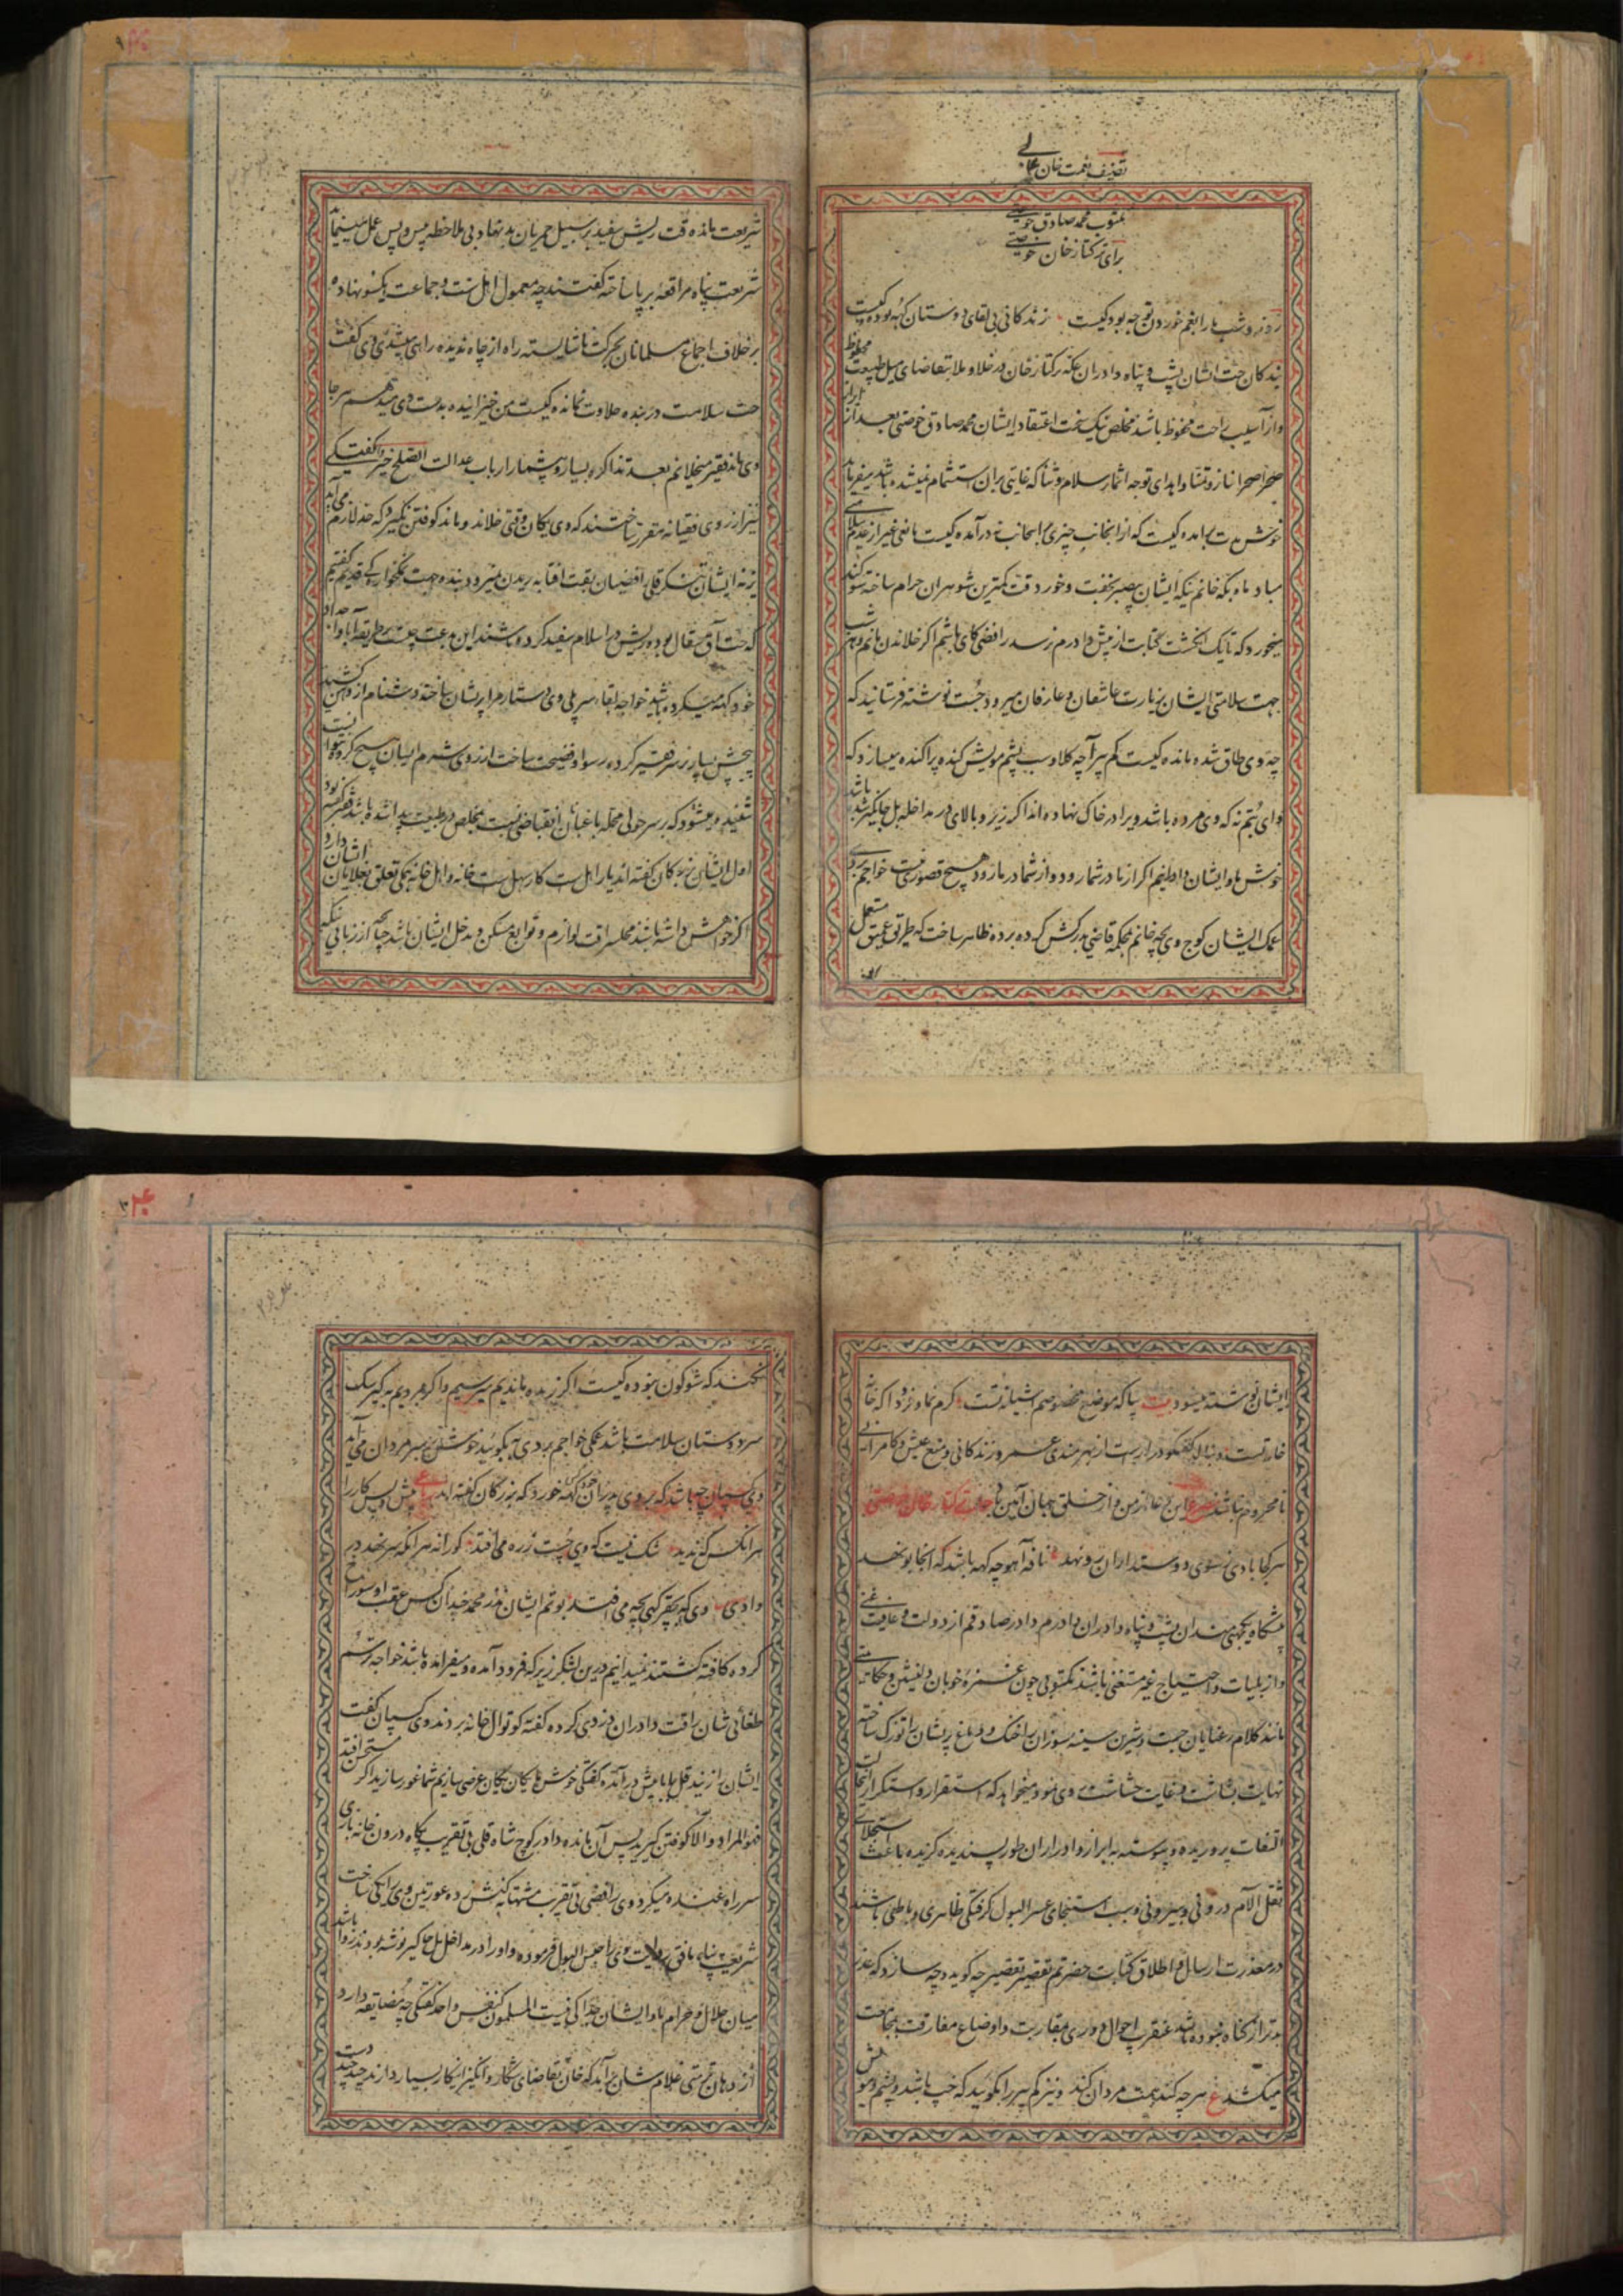 تصنیف نعمت خان عالی
مکتوب محمد صادق خوضتی
برای ترکتاز خان خوضتی
روز و شب ما را بغم خوردن توجه بود کیست زندگانی بی لقای دوستان که بوده کیست
بندگان حت ایشان پشت و پناه دادران عکه ترکتاز خان در خلا و ملا بتقاضای میل طبیعت محظوظ
و از آسیب راحت محفوظ باشند مخلص نیک بخت اعتقاد ایشان محمد صادق خوضتی بعد از ابراز
صحرا صحرا نیاز و تمنا و اهدای توجه اثمار سلام و ثنا که غایتی بران استشمام نمیشده باشد میفرماید
خوش مدت برآمده کیست که از انجانب چیزی باینجانب نه درآمده کیست مانعی غیر از عدم سلامتی
مباد ماه بکه خانم نیکه ایشان بصبر نخفت و خور د قت کمترین شوهران حرام ساخته سوگند
میخورد که تا یک انگشت کتابت از پیش دادرم نرسد رافضی کای باشم اگر خلاندن مانم و هر شب
جهت سلامتی ایشان بزیارت عاشقان و عارفان میرود جست نوشته فرستانید که
چه وی طاق شده مانده کیست کم پیر آچه کلاو سب پشم مویش کنده پراکنده میسازد که
وای بتم نه که وی مرده باشد ویرا در خاک نهاده اند اگر زیر و بالای در مداخله بل جاگیر شد باشد
خوش ما و ایشان دادلیم اگر از ما در شما رود و از شما در ما رود هیچ قصوری نیست خواجم بردی
عمک ایشان کوچ وی بچه خانم بمحکمه قاضی مدرکش کرده برده ظاهر ساخت که طریق عمیق مستعمل
شریعت مانده قت ریش سفید بر سبیل حمریان بد نهاد بی ملاحظه پس و پیش عمل مینماید
شریعت پناه مرافعه بر پا ساخته گفتند چه معمول اهل سنت و جماعت یکسو نهاده
بر خلاف اجماع مسلمانان بحرکت ناشایسته راه از چاه ندیده راهی میشدی وی گفت
حت سلامت در بنده حلاوت نمانده کیست من خیزانیده بدست وی میدهم هر جا
وی ماند فقیر میخلانم بعد تذاکره بسیار و بیشمار ارباب عدالت الصلح خیر گفتگی
نیز از روی فقیهانه مقرر ساختند که وی یکان وقتی خلاند و ماند کوفتن نگیرد که حد لازم می آید
یزنه ایشان تنکر قلی رافضیان بقت آفتابه بریدن میرود بنده جهت نمکخوارگی قدیم گفتیم
که حت آق سقال بوده ریش در اسلام سفید کرده باشند این بدعت چیست طریقه آبا و اجداد
خود که نمیکرده باشید خواجه لقا سر پلی وی دستار مرا پریشان ساخته دشنام از دهن کشید
پیچش بسیار در سر فقیر کرده رسوا و فضیحت ساخت از روی شرم ایشان هیچ کرده نتوانست
شنیده میشود که بر سر حولی محله باغبان انقباضی نسبت بمخلص در طبیعت پیدا شده باشد فقیر گفته بود
اول ایشان بزرگان گفته اند یار اهل است کار سهل است خانه و اهل خانه یکی تعلق بملایان ایشان دارد
اگر خواهش داشته باشند محلسراقت لوازم و توابع مسکن و مدخل ایشان باشد بچه از زبانی نیکه
ایشان نوشته میشود بیت بیا که موضع مخصوصم آشیانه تست کرم نما و فرود آ که خانه
خانه تست دنباله گفتگو دراز است از بهرمندی عمر و زندگانی و منع عیش و کامرانی
نامحروم باشند مصرع این دعا از من و از خلق جهان آمین باد جانب ترکتاز خان خوضتی
هر کجا بادی ز سوی دوستداران رو نهد ع نافه آهو چه گه باشد که آنجا بو نهد
مشکاه یکجهتی مندان پشت و پناه دادران دادرم دادر صادقم از دولت و عافیت غنی
و از بلیات و احتیاج غیر مستغنی باشند مکتوبی چون غمزه خوبان دلنشین و حکایتی
مانند کلام رعنایان چست و شیرین سینه سوزان را خنک و دماغ پریشان را تورک ساخته
نهایت بشاشت و غایت حشاشت روی نمود میخواهد که استقرار و استکرار از لت
التفات پرورنده و پیوسته به ابراز و ادراران طور پسندیده گزیده باعث استجلای
ثقل الآلام درونی و بیرونی و سبب استنجای عسر البول گرفتگی ظاهری و باطنی باشند
در معذرت ارسال و اطلاق کتابت حضرتم تقصیر تقصیر چه گوید و چه سازد که عذر
بدتر از گناه نبوده باشد عنقرب احوال دوری بمقاربت و اوضاع مفارقت بمجامعت
میکشد ع هر چه کند همت مردان کند و نیز کم پیر را بگویند که خپ باشد و پشم و مویش
نکند که شوکون نبوده کیست اگر زنده ماندیم میرسیم و اگر مردیم به کیر سگ
سر دوستان سلامت باشد عمکی خواجم بردی آ بگویند خوشش بر سر مردان می آید
وی کسپان چه باشد که بر وی پدران خود گه خورد که بزرگان گفته اند رباعی پیش و پس کار را
هر آنکس که ندید شک نیست که وی چست زره می افتد کورانه هر آنکه سر نهد در
وادی وی که بچقر گهی بچه می افتد بوتم ایشان نذر محمد چندان کس عقب او سوراخ
کرده کافته گشتند نمیدانیم در این لشکر زیر که فرود آمده و میفرآمده باشد خواجه رستم
طغائی شان را قت دادران دزدی کرده گفته کوتوال خانه بردند وی کسپان گفت
ایشان را زنید قل بابا پیش درآمده گفتگی خوش ما یکان یکان عرض سازیم شما غور سازید اگر مستحسن افتد
فهو المراد و الا کوفتن گیرید پس آن مانده دادر کوچ شاه قلی بی تقریب پگاه درون خانه بازی
سر راه غنده میکرد وی رافضی بی تقریب مشتها به کنش زده عورتین وی را یکی ساخت
شریعت پناه مافق روایت وی را حبس البول فرموده و او را در مداخل بل جاگیر نوشته بودند روا باشد
میان حلال و حرام ما و ایشان جدا کی نیست المسلمون کنفس واحد گفتگی چه مضایقه دارد
از دهان تمرتشی غلام شان برآید که خان بتقاضای شکار و انگیز اینکار بسیار دارند چند چند دست